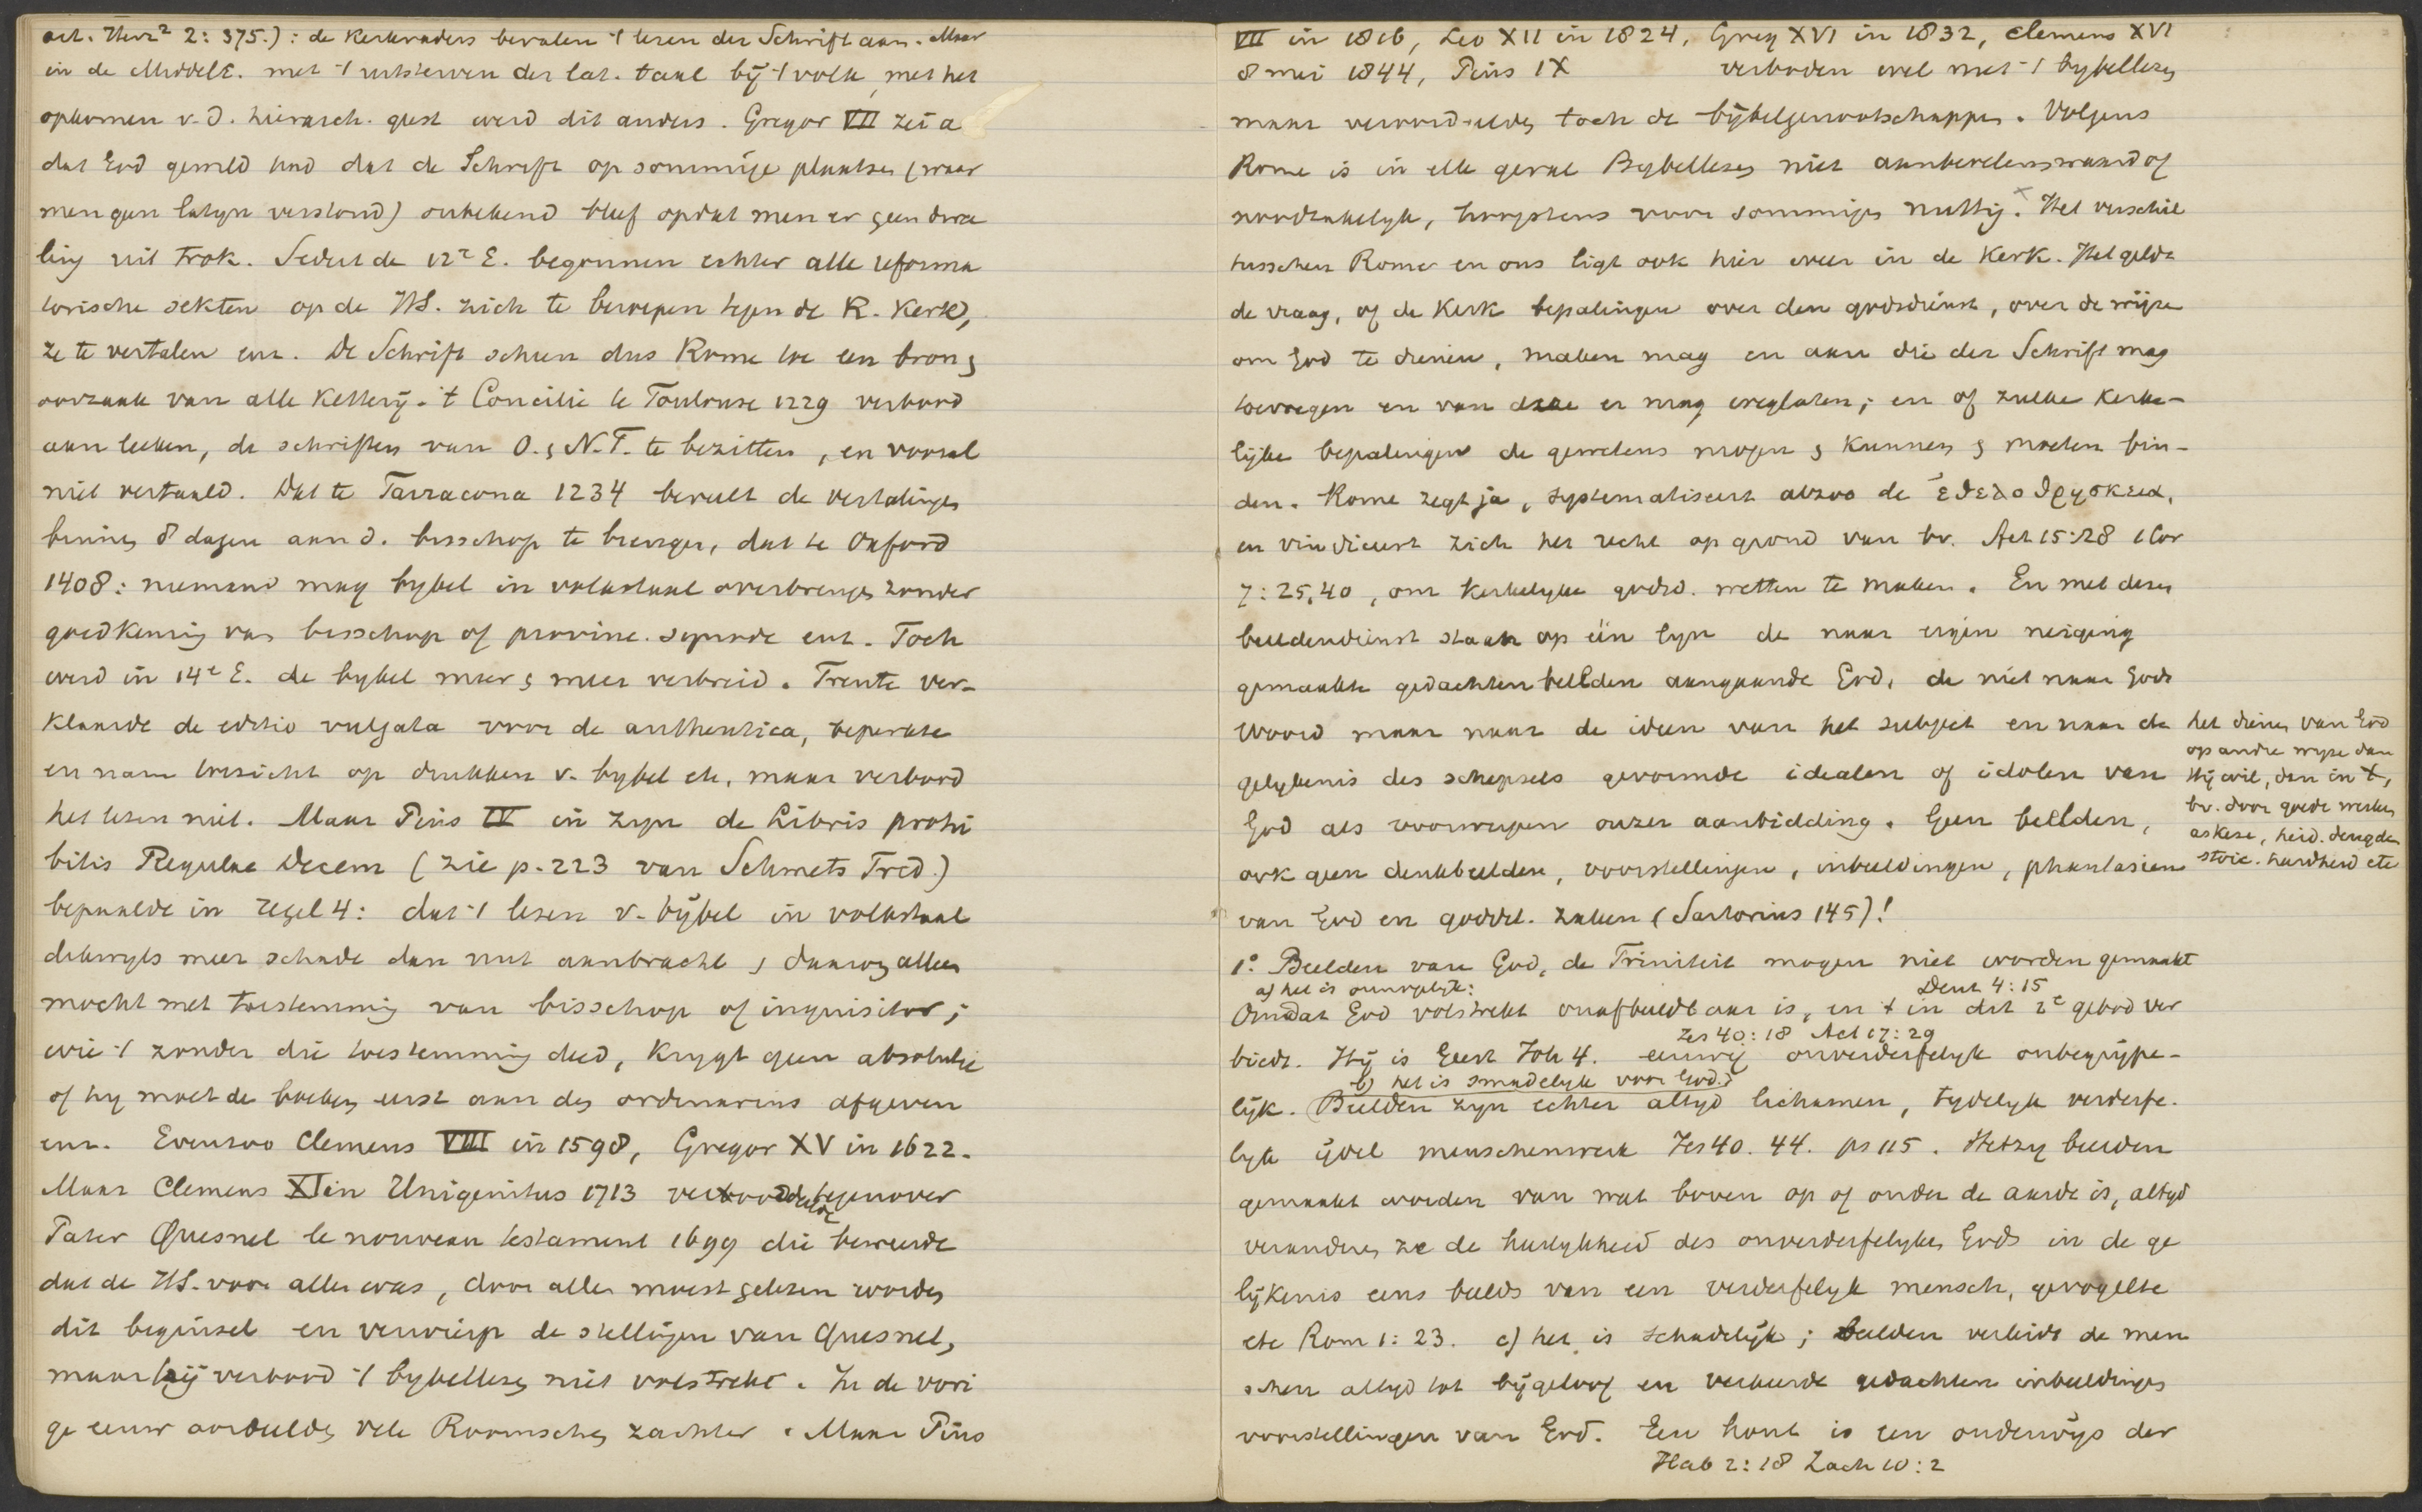 art. Herz² 2: 375.): de Kerkvaders bevalen 't lezen der Schrift aan. Maar
in de MiddelE. met 't uitsterven der lat. taal bij 't volk, met het
opkomen v. d. hierarch. geest werd dit anders. Gregor VII zei a
dat God gewild had dat de Schrift op sommige plaatsen (waar
men geen latyn verstond) onbekend bleef opdat men er geen dwa
ling uit trok. Sedert de 12e E. begonnen echter alle reforma
torische sekten op de HS. zich te beroepen tegen de R. Kerk,
ze te vertalen enz. De Schrift scheen dus Rome toe een bron &
oorzaak van alle Ketterij. 't Concilie te Toulouse 1229 verbood
aan leeken, de schriften van O. & N.T. te bezitten, en vooral
niet vertaald. Dat te Tarracona 1234 beveelt de vertalingen
binnen 8 dagen aan d. bisschop te brengen, dat te Oxford
1408: niemand mag bybel in volkstaal overbrengen zonder
goedkeuring van bisschop of provinc. synode enz. Toch
werd in 14e E. de bybel meer & meer verbreid. Trente ver-
klaarde de editio vulgata voor de authentica, beperkte
en nam toezicht op drukken v. bybel etc, maar verbood
het lezen niet. Maar Pius IV in zyn de Libris prohi
bitis Regulae Decem (zie p. 223 van Schmets Trid.)
bepaalde in regel 4: dat 't lezen v. bijbel in volkstaal
dikwyls meer schade dan nut aanbracht & daarom alleen
mocht met toestemming van bisschop of inquisitor;
wie 't zonder die toestemming deed, krygt geen absolutie
of hy moet de boeken eerst aan den ordinarius afgeven
enz. Evenzoo Clemens VIII in 1598, Gregor XV in 1622.
Maar Clemens XI in Unigenitus 1713 veroordeelde tegenover
Pater Quesnel le nouveau testament 1699 die beweerde
dat de HS. voor allen was, door allen moest gelezen worden
dit beginsel en verwierp de stellingen van Quesnel,
maar hij verbood 't bybellezen niet volstrekt. In de vori
ge eeuw oordeelden vele Roomschen zachter. Maar Pius
VII in 1816, Leo XII in 1824, Greg XVI in 1832, Clemens XVI
8 mei 1844, Pius IX verboden wel niet 't bybellezen
maar veroordeelden toch de bijbelgenootschappen. Volgens
Rome is in elk geval Bybellezen niet aanbevelenswaard of
noodzakelyk, hoogstens voor sommigen nuttig. x Het verschil
tusschen Rome en ons ligt ook hier weer in de Kerk. Het geldt
de vraag, of de Kerk bepalingen over den godsdienst, over de wijze
om God te dienen, maken mag en aan die der Schrift mag
toevoegen en van deze er mag weglaten; en of zulke Kerke-
lijke bepalingen de gewetens mogen & kunnen & moeten bin-
den. Rome zegt ja, systematiseert alzoo de ἐθελοθρησκεια,
en vindiceert zich het recht op grond van bv. Act 15:28 1 Cor
7: 25,40, om kerkelyke godsd. wetten te maken. En met dezen
beeldendienst staan op één lyn de naar eigen neiging
gemaakte gedachtenbeelden aangaande God, de niet naar Gods
Woord maar naar de ideen van het subject en naar de
gelykenis des schepsels gevormde idealen of idolen van
God als voorwerpen onzer aanbidding. Geen beelden,
ook geen denkbeelden, voorstellingen, inbeeldingen, phantasieen
van God en goddel. zaken (Sartorius 145)!
het dienen van God
op andre wyze dan
Hij wil, dan in X,
bv. door goede werken
askese, heid. deugden
stoic. hardheid etc
1° Beelden van God, de Triniteit mogen niet worden gemaakt
a) het is onmogelyk: Deut 4:15
Omdat God volstrekt onafbeeldbaar is, en 't in dit 2e gebod ver
Jes 40:18 Act 17:29
biedt. Hij is Geest Joh 4. eeuwig onverderfelyk onbegrijpe-
b) het is smadelyk voor God.
lijk. Beelden zyn echter altyd lichamen, tydelyk verderfe-
lyk ijdel menschenwerk Jes 40. 44. ps 115. Hetzy beelden
gemaakt worden van wat boven op of onder de aarde is, altyd
veranderen ze de heerlykheid des onverderfelyken Gods in de ge
lijkenis eens beelds van een verderfelyk mensch, gevogelte
etc Rom 1: 23. c) het is schadelijk; beelden verleidt de men
schen altyd tot bijgeloof en verkeerde gedachten inbeeldingen
voorstellingen van God. Een hout is een onderwijs der
Hab 2:18 Zach 10:2